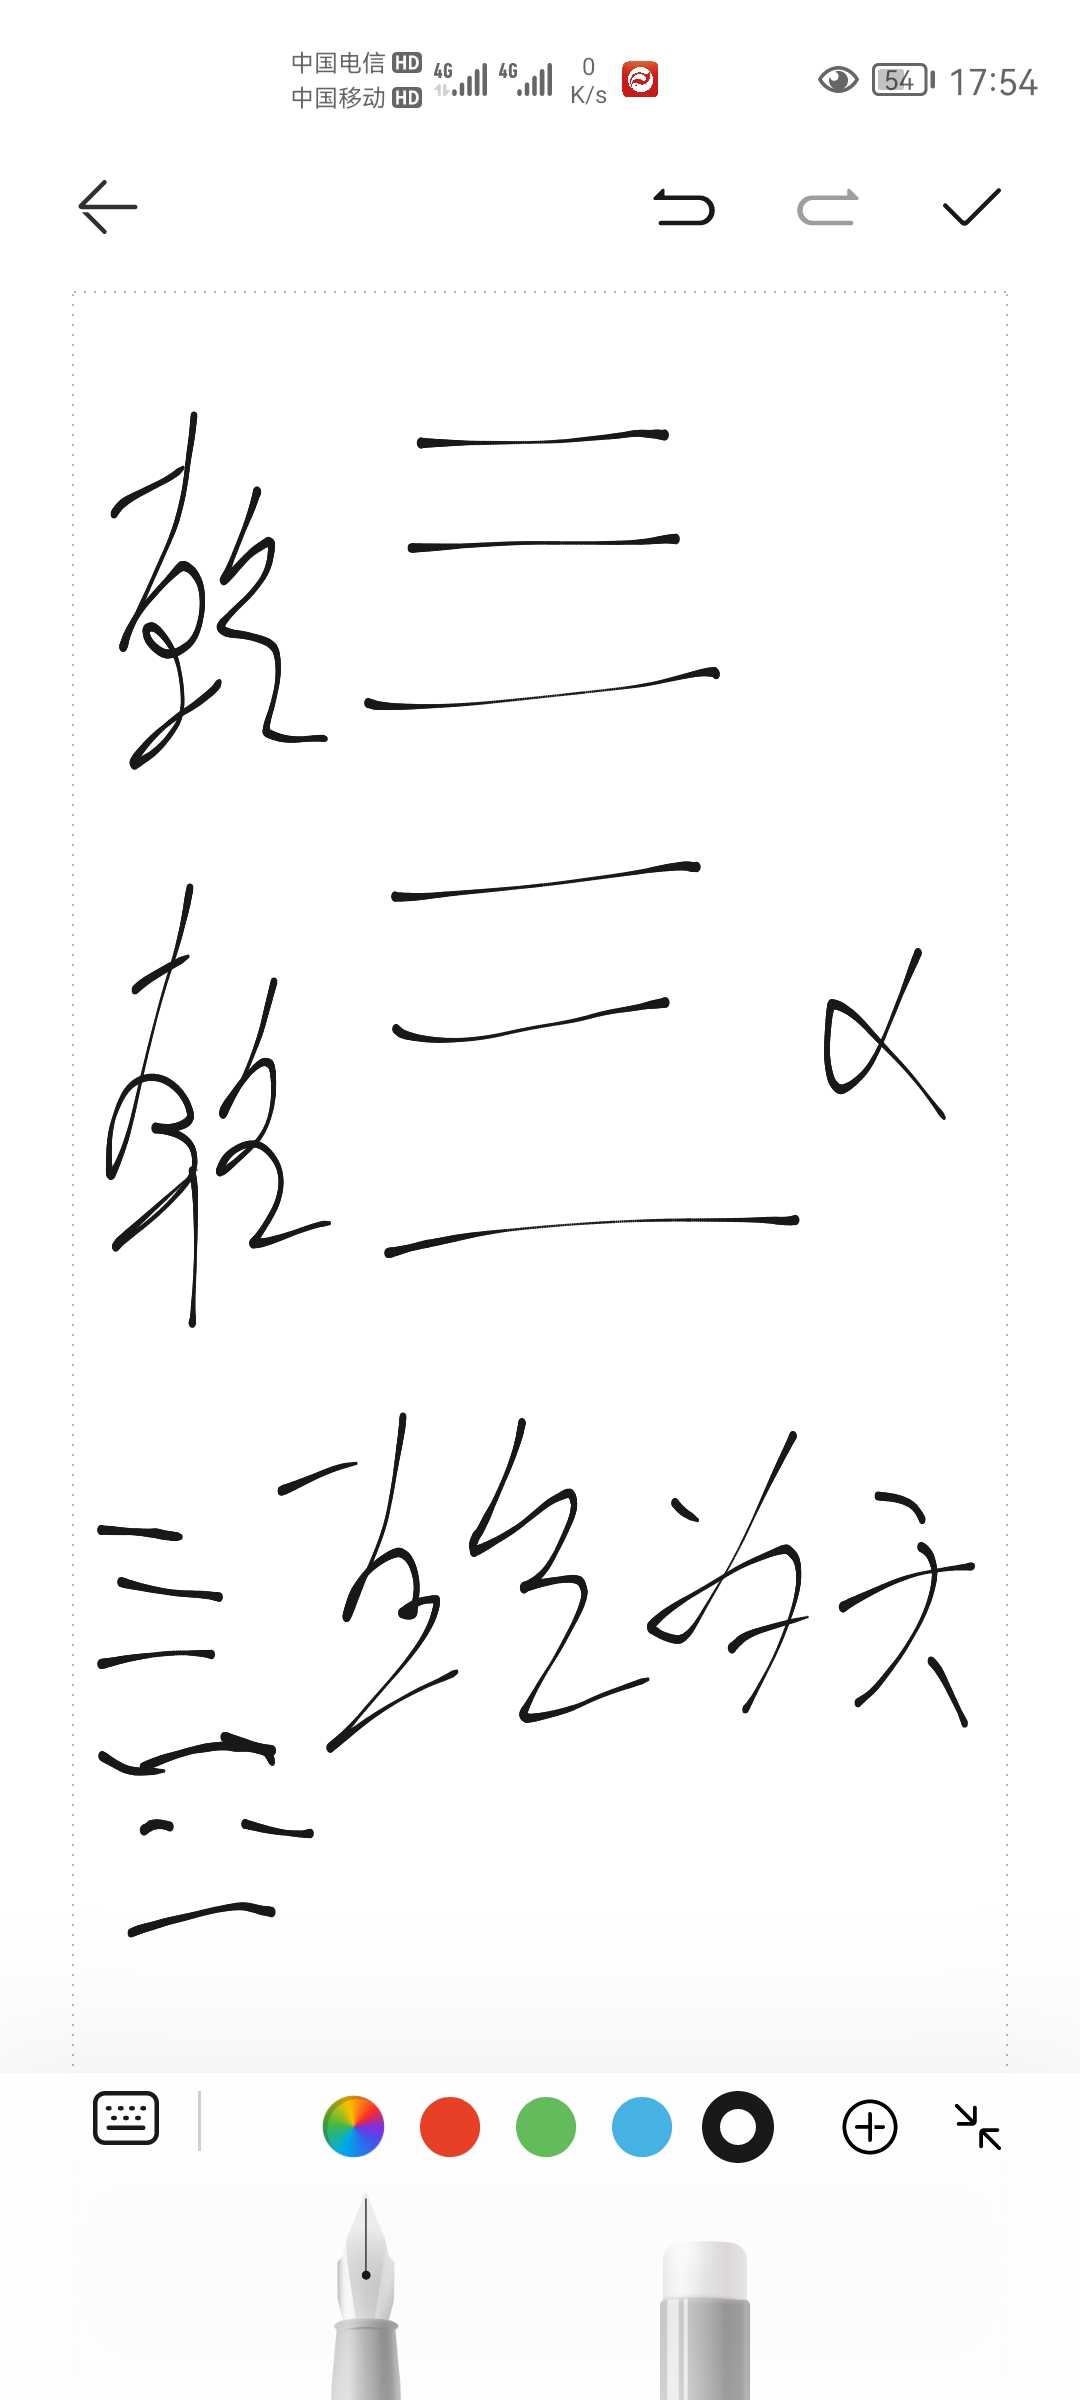 中国电信 HD 4G 4G 0 K/s 54 17:54
中国移动 HD
乾 ☰
乾 ☰ x
乾为天